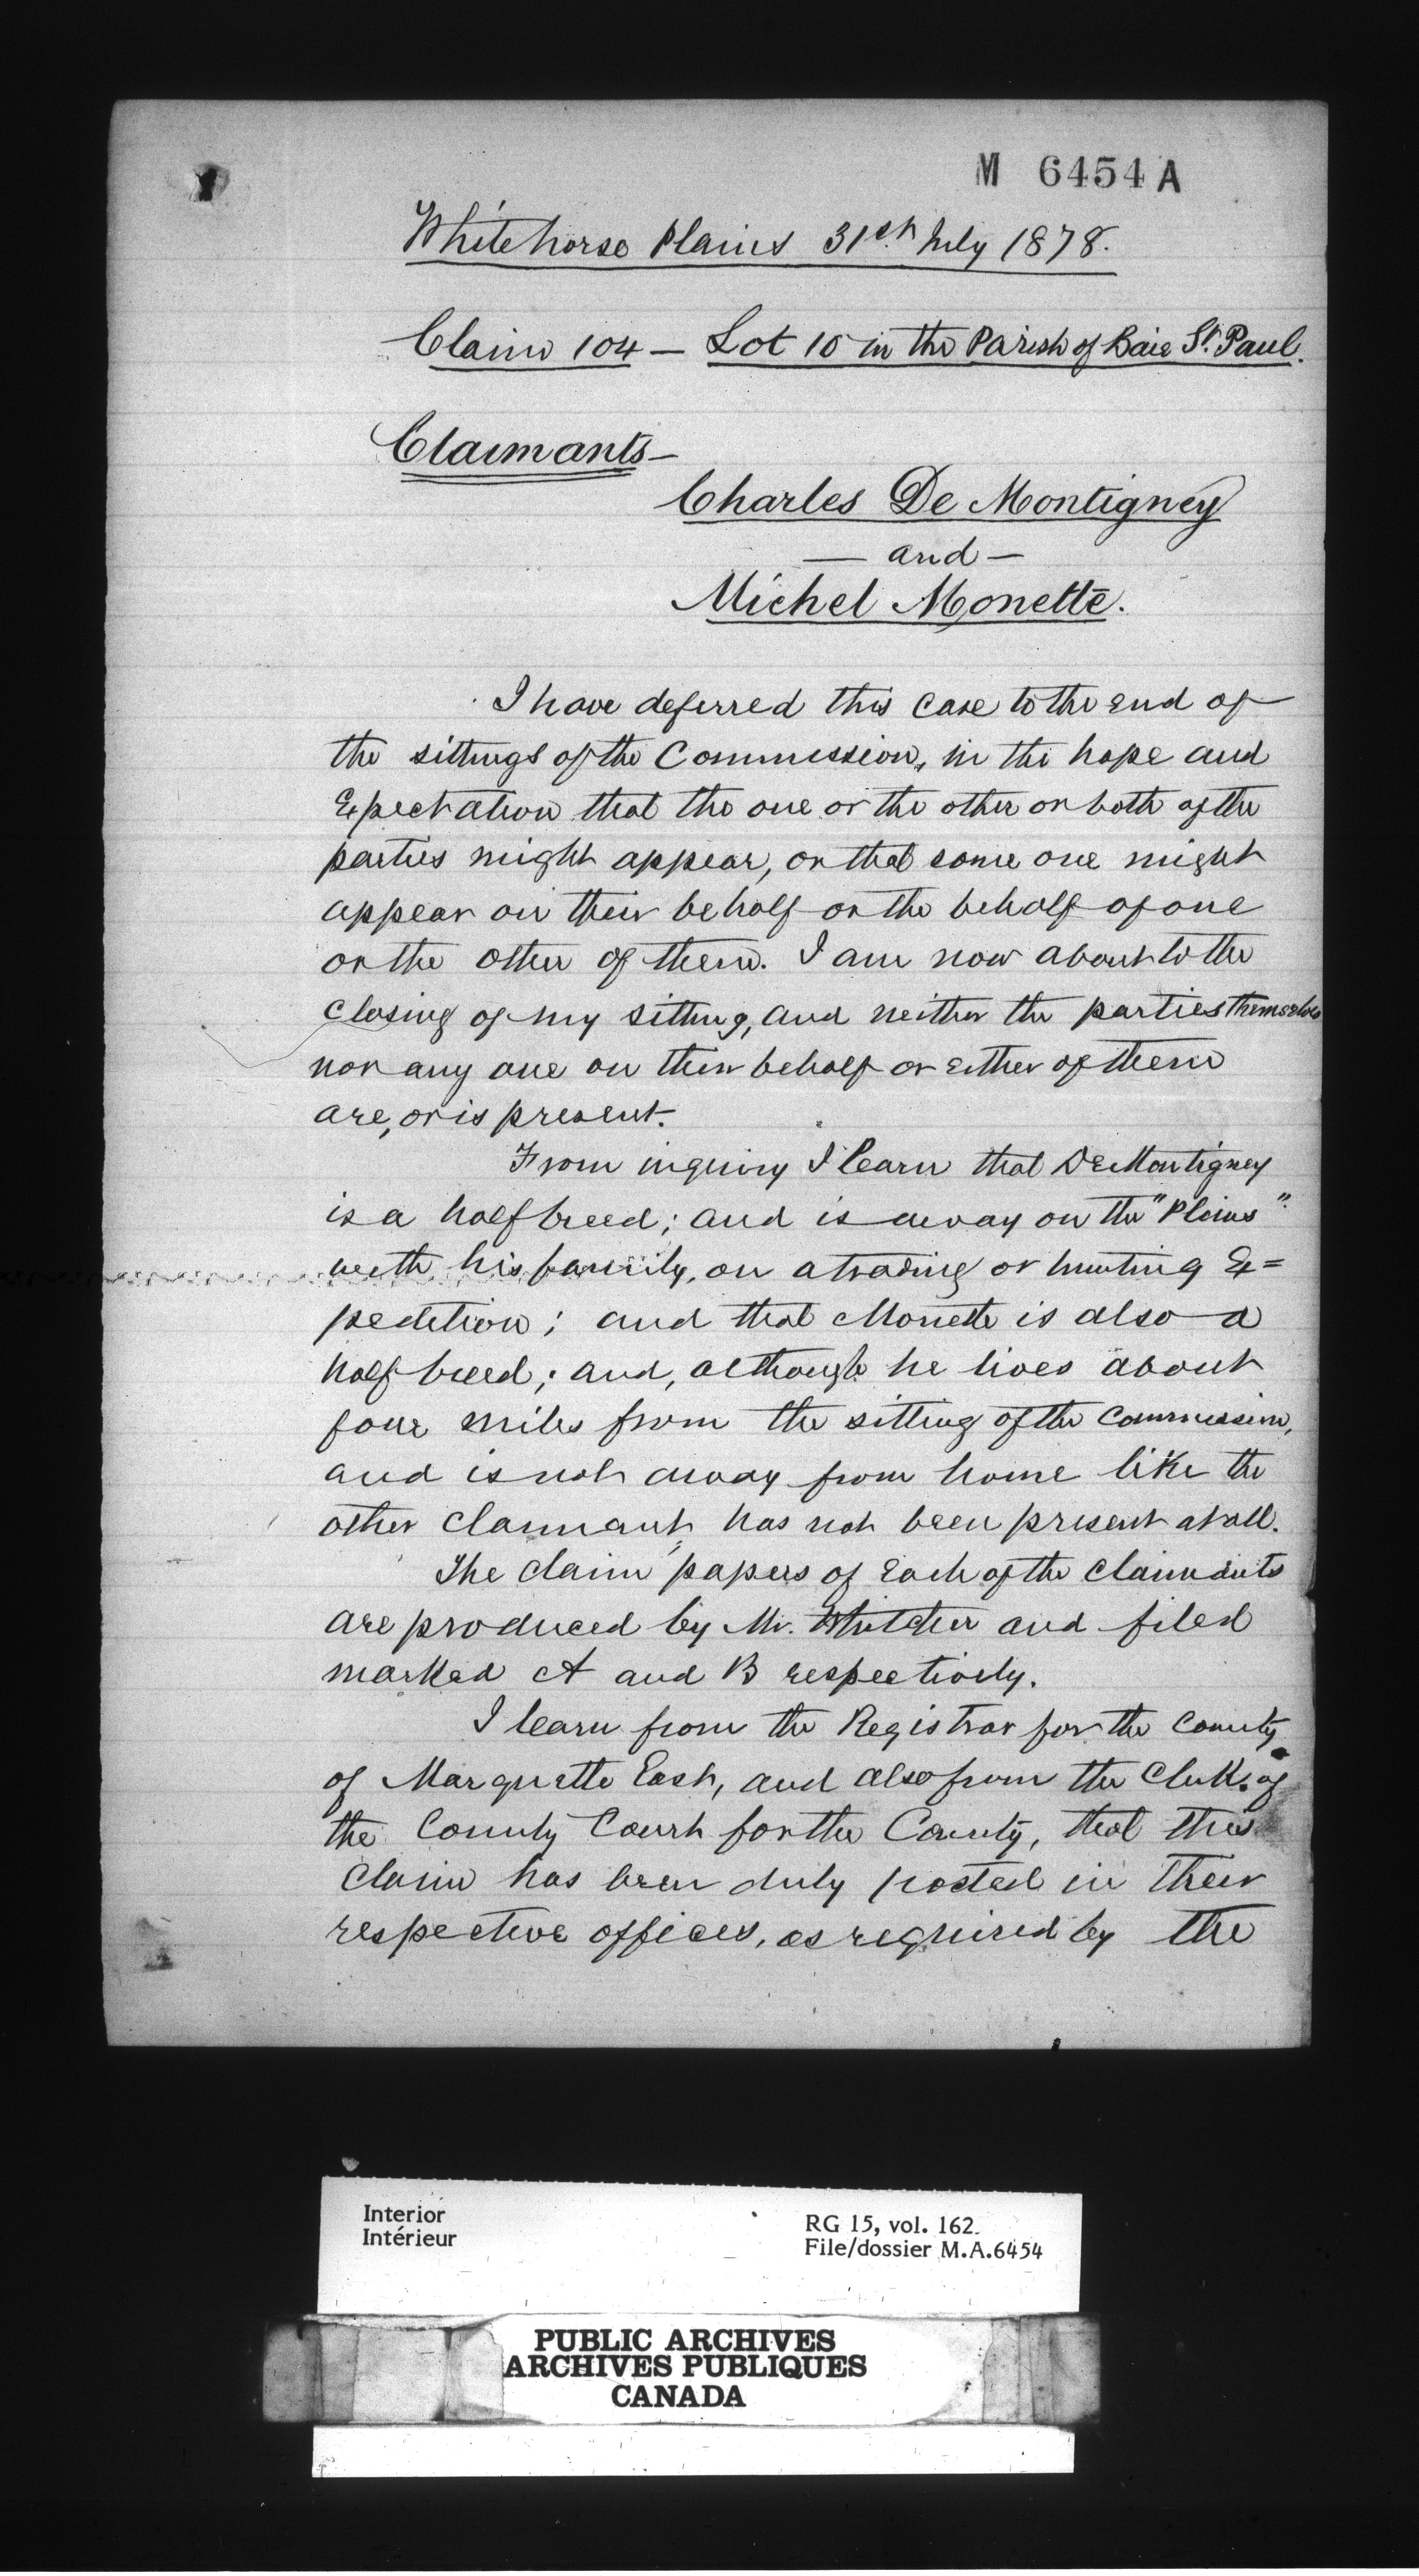 M 6454 A
Whitehorse Plains 31st July 1878.
Claim 104 — Lot 10 in the Parish of Baie St. Paul.
Claimants —
Charles De Montigney
— and —
Michel Monette.
I have deferred this case to the end of
the sittings of the Commission, in the hope and
Expectation that the one or the other or both of the
parties might appear, or that some one might
appear on their behalf or the behalf of one
or the other of them. I am now about to the
closing of my sitting, and neither the parties themselves
nor any one on their behalf or either of them
are, or is present.
From inquiry I learn that DeMontigney
is a half breed; and is away on the "Plains"
with his family, on a trading or hunting Ex=
pedition; and that Monette is also a
half breed; and, although he lives about
four miles from the sitting of the Commission,
and is not away from home like the
other claimant, has not been present at all.
The claim papers of each of the claimants
are produced by Mr. Whitcher and filed
marked A and B respectively.
I learn from the Registrar for the County
of Marquette East, and also from the Clerk of
the County Court for the County, that this
claim has been duly posted in their
respective offices, as required by the
Interior
Intérieur
RG 15, vol. 162.
File/dossier M.A.6454
PUBLIC ARCHIVES
ARCHIVES PUBLIQUES
CANADA